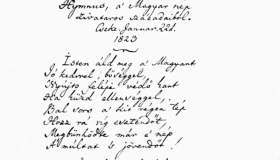 Hymnus, a' Magyar nep
zivataros századaiból.
Cseke, Januar. 22d.
1823
Isten áld meg a' Magyart
Jó kedvvel, bőséggel,
Nyújts feléje védő kart
Ha küzd ellenséggel,
Bal sors a' kit régen tép
Hozz rá víg esztendőt,
Megbünhödte már e' nép
A' múltat 's jövendőt!